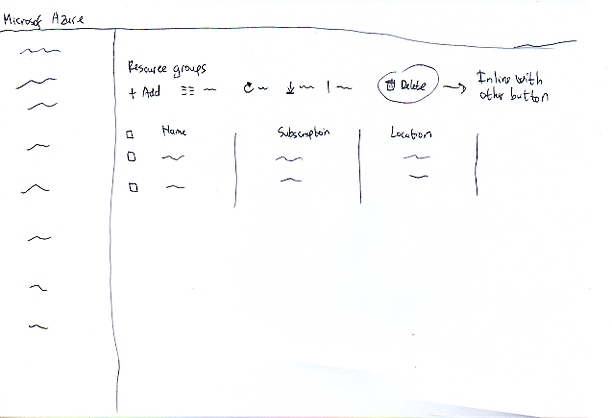 Microsof Azure
Resource groups
+ Add
Delete
Inline with
other button
Name Subscription Location